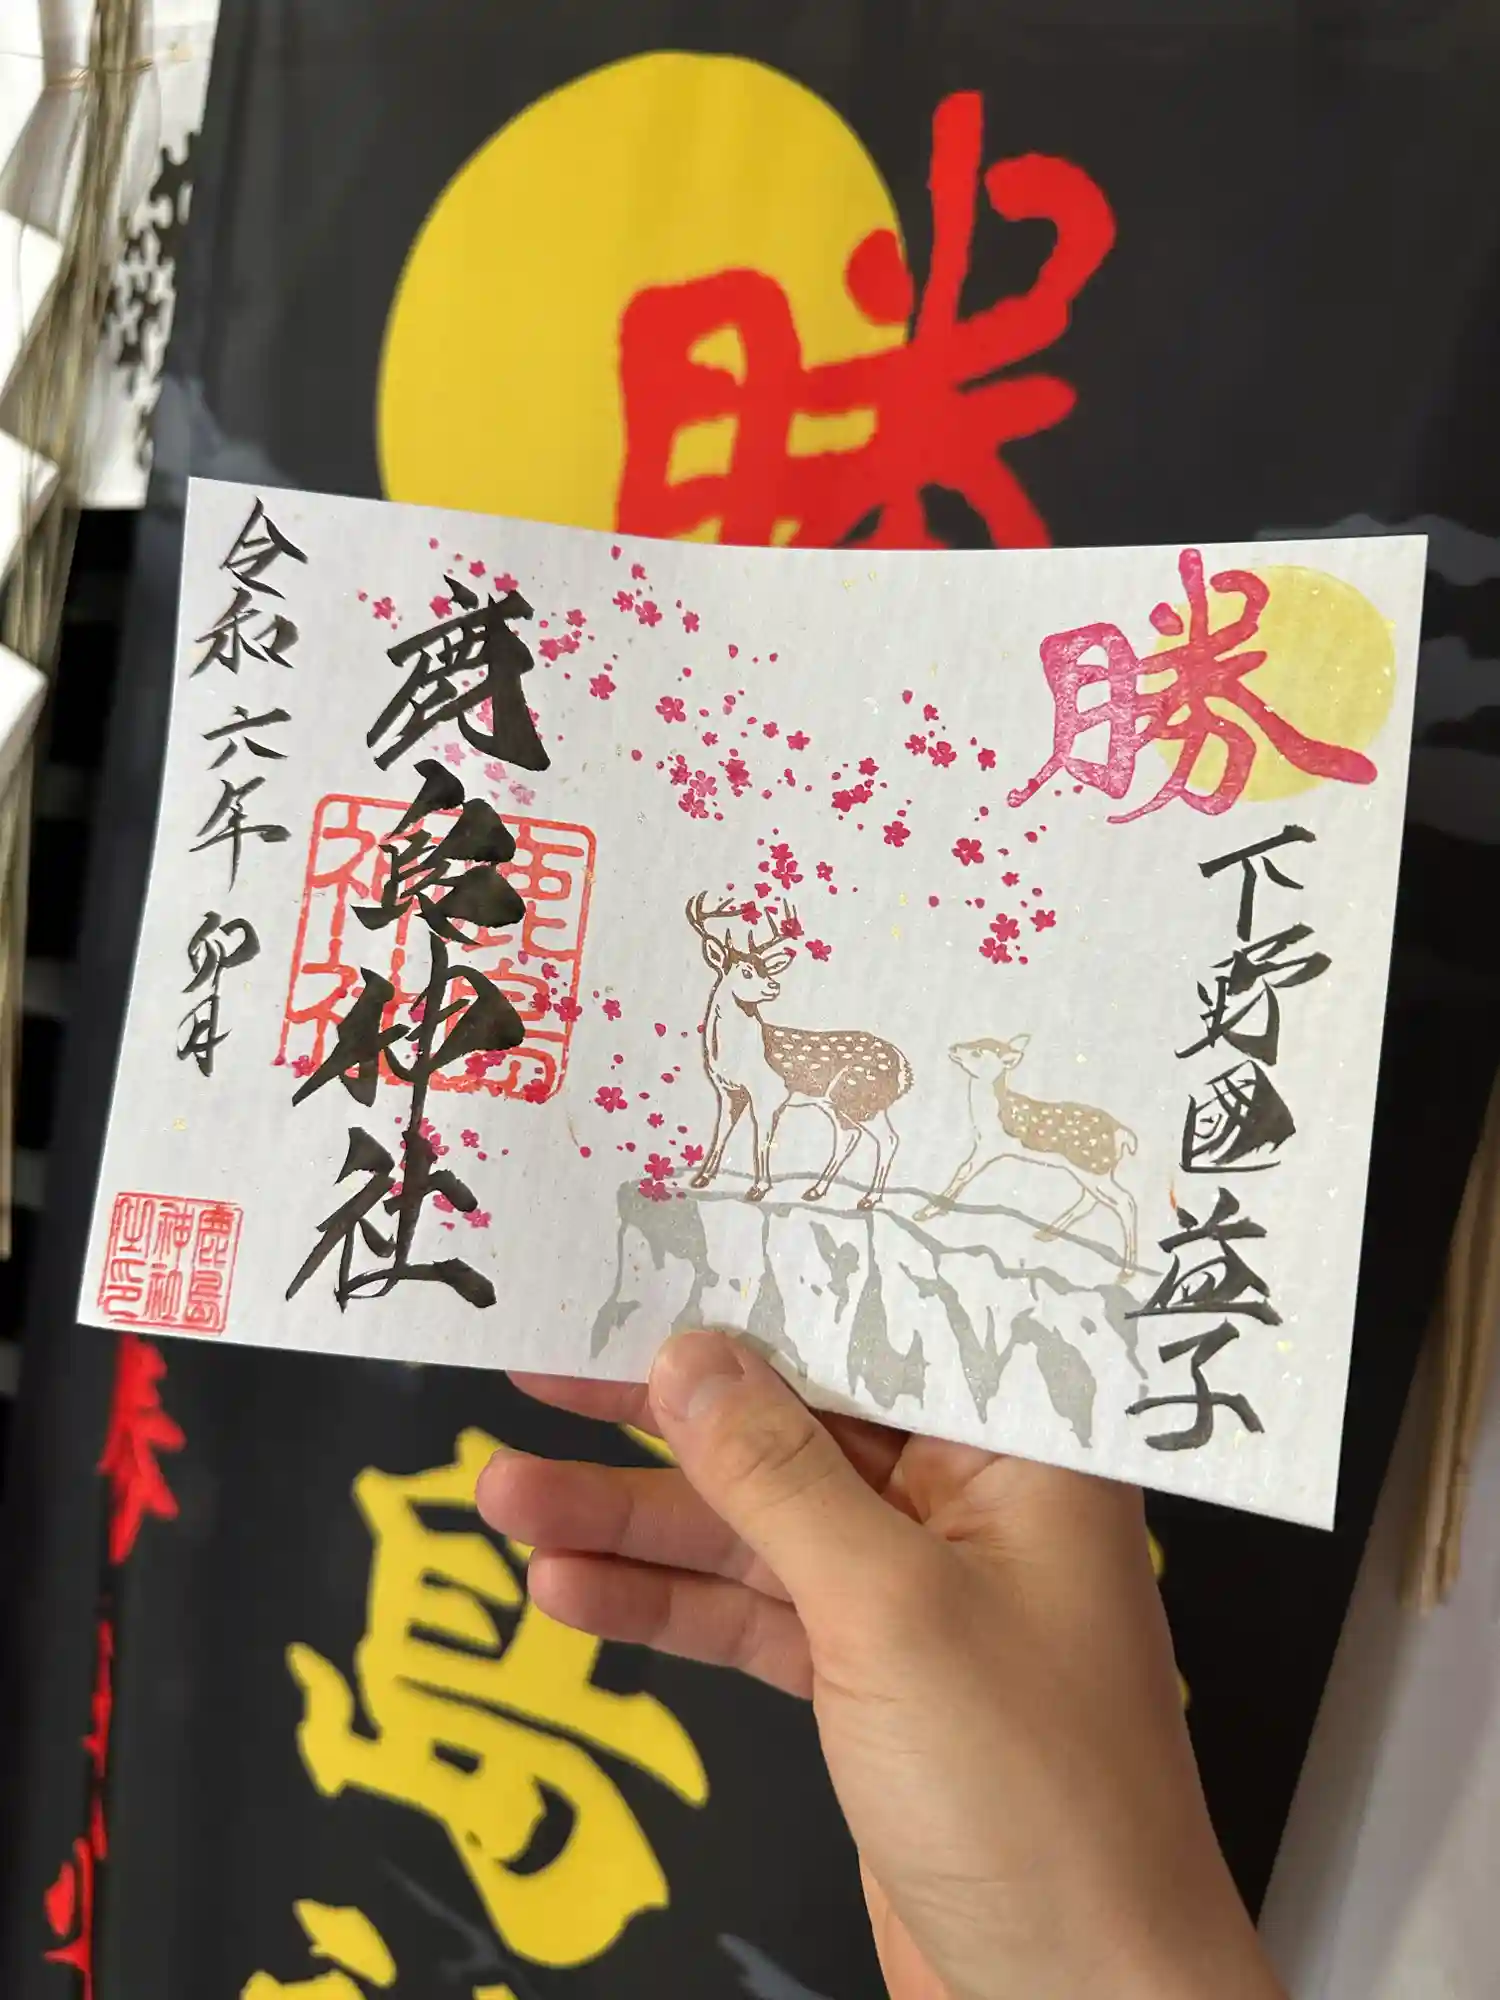 勝
勝
下野國益子
鹿島神社
鹿島神社
令和六年 卯月
鹿島神社之印